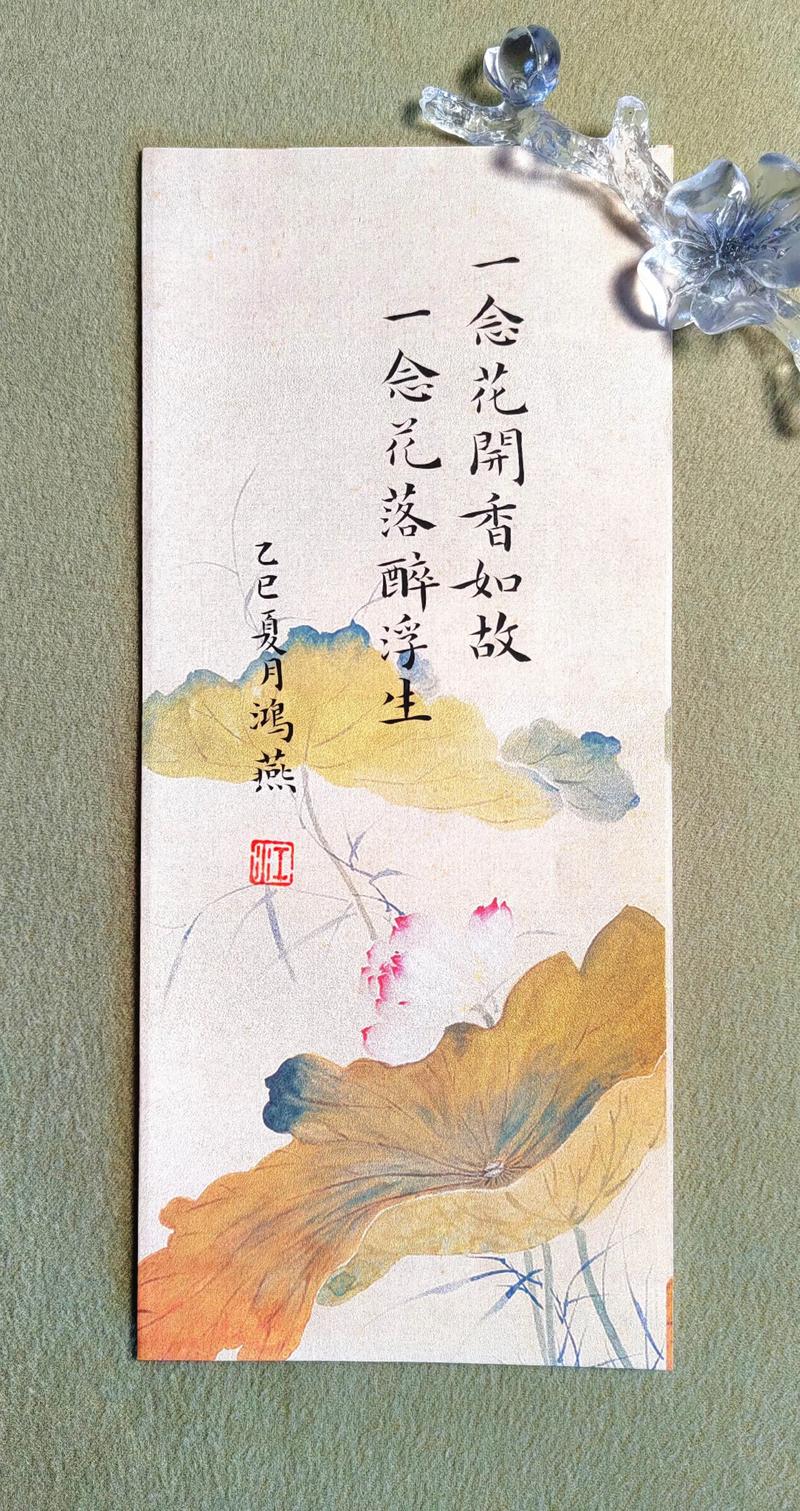 一念花開香如故
一念花落醉浮生
乙巳夏月鴻燕
江